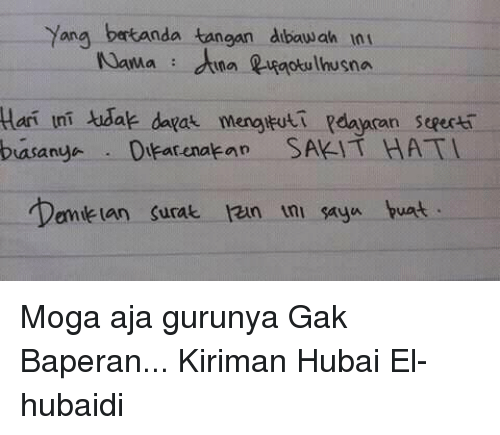 Yang bertanda tangan dibawah ini
Nama : Aina Rifqotulhusna
Hari ini tidak dapat mengikuti pelajaran seperti
biasanya . Dikarenakan SAKIT HATI
Demikian surat izin ini saya buat .
Moga aja gurunya Gak
Baperan... Kiriman Hubai El-
hubaidi